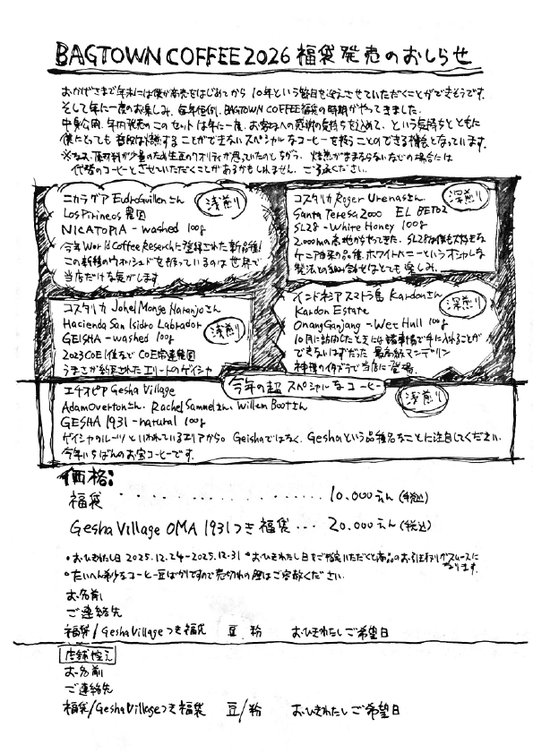 BAGTOWN COFFEE 2026 福袋発売のおしらせ
おかげさまで年末には僕が商売をはじめてから10年という節目を迎えさせていただくことができそうです。
そして年に一度のお楽しみ、毎年恒例、BAGTOWN COFFEE福袋の時期がやってきました。
という気持ちとともに
僕にとっても普段は味わすることができないスペシャルなコーヒーを扱うことのできる機会となっています。
代替のコーヒーとさせていただくことがあるかもしれません。ご了承ください。
ニカラグア Eudroさん
浅煎り
Los Pirineos 農園
NICATOPIA - washed 100g
今年World Coffee Reserchに登録された新品種!
この新種のウォッシュドを扱っているのは世界で
当店だけな気がします
コスタリカ Roger Urenaさん
深煎り
Santa Teresa 2000 EL BETO2
SL28 - White Honey 100g
2,000mの高地からやってきた、SL28は僕も大好きな
ケニア由来の品種、ホワイトハニーというオシャレな
発法との組み合せはとても楽しみ。
コスタリカ Johel Monge Naranjoさん
Hacienda San Isidro Labrador
浅煎り
GEISHA - washed 100g
2023COE1位などCOE常連農園
うまさが約束されたエリートのゲイシャ
インドネシア スマトラ島 Kardonさん
深煎り
Kardon Estate
Onang Ganjang - Wet Hull 100g
できないはずだった 最高級マンデリン
今年の超スペシャルなコーヒー
エチオピア Gesha Village
浅煎り
Adam Overtonさん, Rachel Samuelさん, Willem Bootさん
GESHA 1931 - natural 100g
ゲイシャのルーツといわれているエリアから Geishaではなく、Geshaという品種名なことに注目してください.
今年いちばんのお宝コーヒーです.
価格:
福袋 ・・・・・・・・・・・・ 10.000えん(税込)
Gesha Village OMA 1931つき福袋 ・・・ 20.000えん(税込)
*お・ひきわたし日 2025.12.24-2025.12.31 *お・ひきわたし日をご指定いただくと商品のお引き渡しがスムースに
なります.
*たいへん希少なコーヒー豆ばかりですので売切れの際はご容赦ください.
お名前
ご連絡先
福袋/Gesha Villageつき福袋 豆 粉 お・ひきわたしご希望日
店舗控え
お名前
ご連絡先
福袋/Gesha Villageつき福袋 豆/粉 お・ひきわたしご希望日